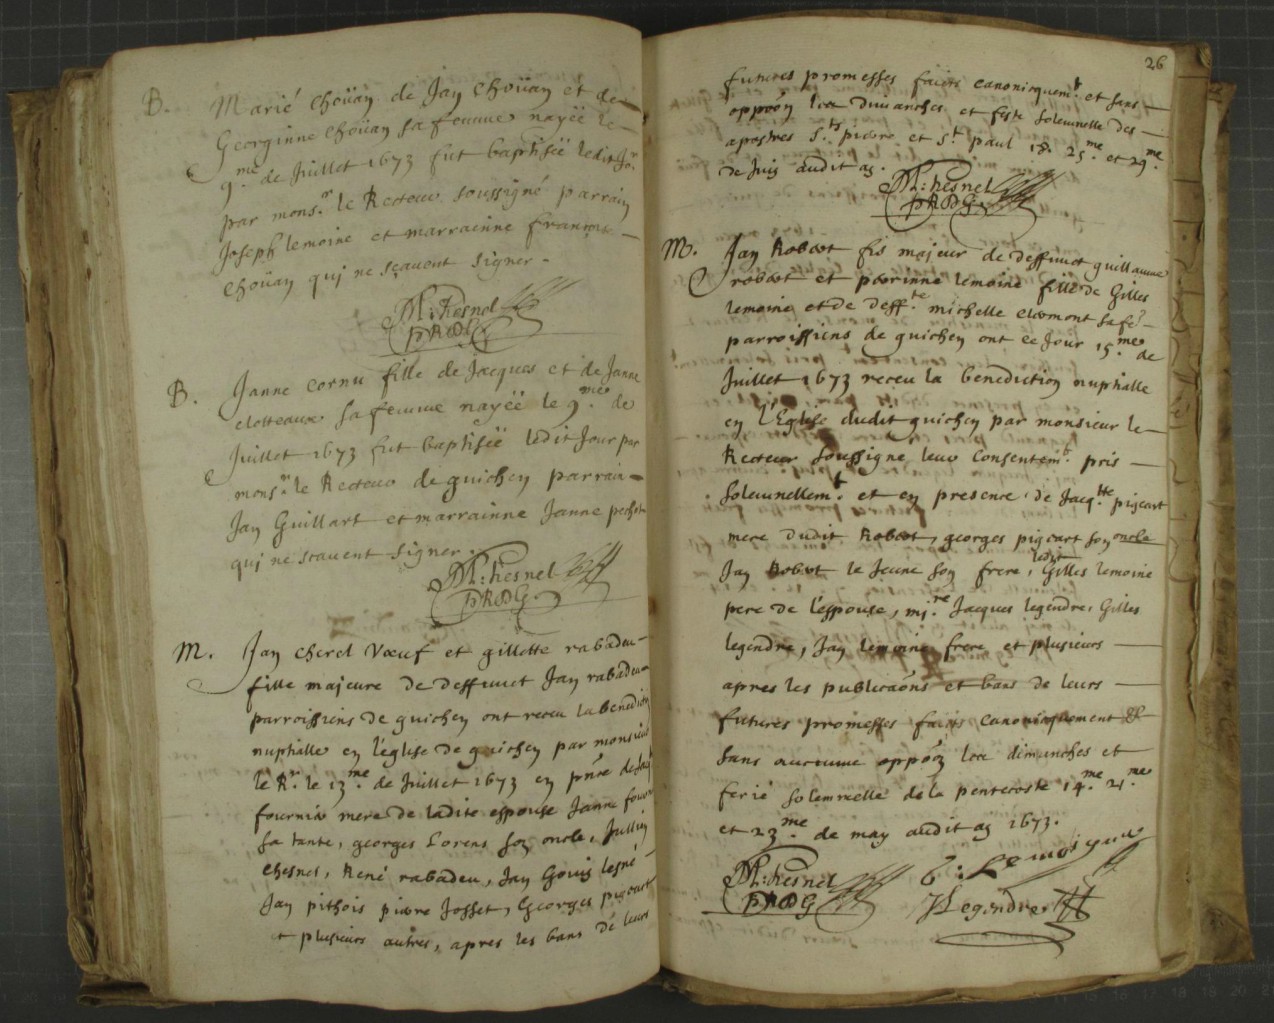 B. Marié Choüan de Jan Choüan et de
Georginne Choüan sa femme nayëë le
9.me de Juillet 1673 fut baptisëë ledit Jor
par monsr. le Recteur soussigné parrain
Joseph lemoine et marrainne francoise
Choüan qui ne scavent signer.
M: Chesnel
PRDG
B. Janne cornu fille de Jacques et de Janne
clotteaux sa femme nayëë le 9.me de
Juillet 1673 fut baptisëë ledit Jour par
monsr. le Recteur de guichen parrain
Jan Guillart et marrainne Janne
qui ne scavent signer.
M: Chesnel
PRDG.
M. Jan cherel Vœuf et gillette rabadeu
fille majeure de deffunct Jan rabadeu
parroissiens de guichen ont receu la benediction
nuptialle en l'eglise de guichen par monsieur
le Rr. le 13.me de Juillet 1673 en pnce de
fournier mere de ladite espouse Janne
sa tante, georges Lorens son oncle, Jullien
chesnel, René rabadeu, Jan Gouis lesné
Jan pithois pierre Josset, Georges pigeart
et plusieurs autres, apres les bans de leurs
26
futures promesses faits canoniquemt. et sans
oppoön les dimanches et feste solemnelle des
apostres St. pierre et St. paul 18. 25.me et 29.me
de Juin audit an.
M: Chesnel
PRDG.
M. Jan Robert fis majeur de deffunct guillaume
robert et perrinne lemoine fille de Gilles
lemoine et de deff.te michelle clermont sa fe.
parroissiens de guichen ont ce Jour 15.me de
Juillet 1673 receu la benediction nuptialle
en l'Eglise dudit guichen par monsieur le
Recteur soussigne leur consentemt. pris
solemnellemt. et en presence de Jacqtte pigeart
mere dudit Robert, georges pigeart son oncle
Jan Robert le Jeune son frere, ledit Gilles lemoine
pere de l'espouse, mi.re Jacques legendre, Gilles
legendre, Jan lemoine frere et plusieurs
apres les publicaöns et bans de leurs
futures promesses faits canoniquement &
sans aucunne oppoön les dimanches et
ferie solemnelle de la pentecoste 14.me 21.me
et 23.me de may audit an 1673.
M: Chesnel
PRDG
G: Le moigne
J Legendre